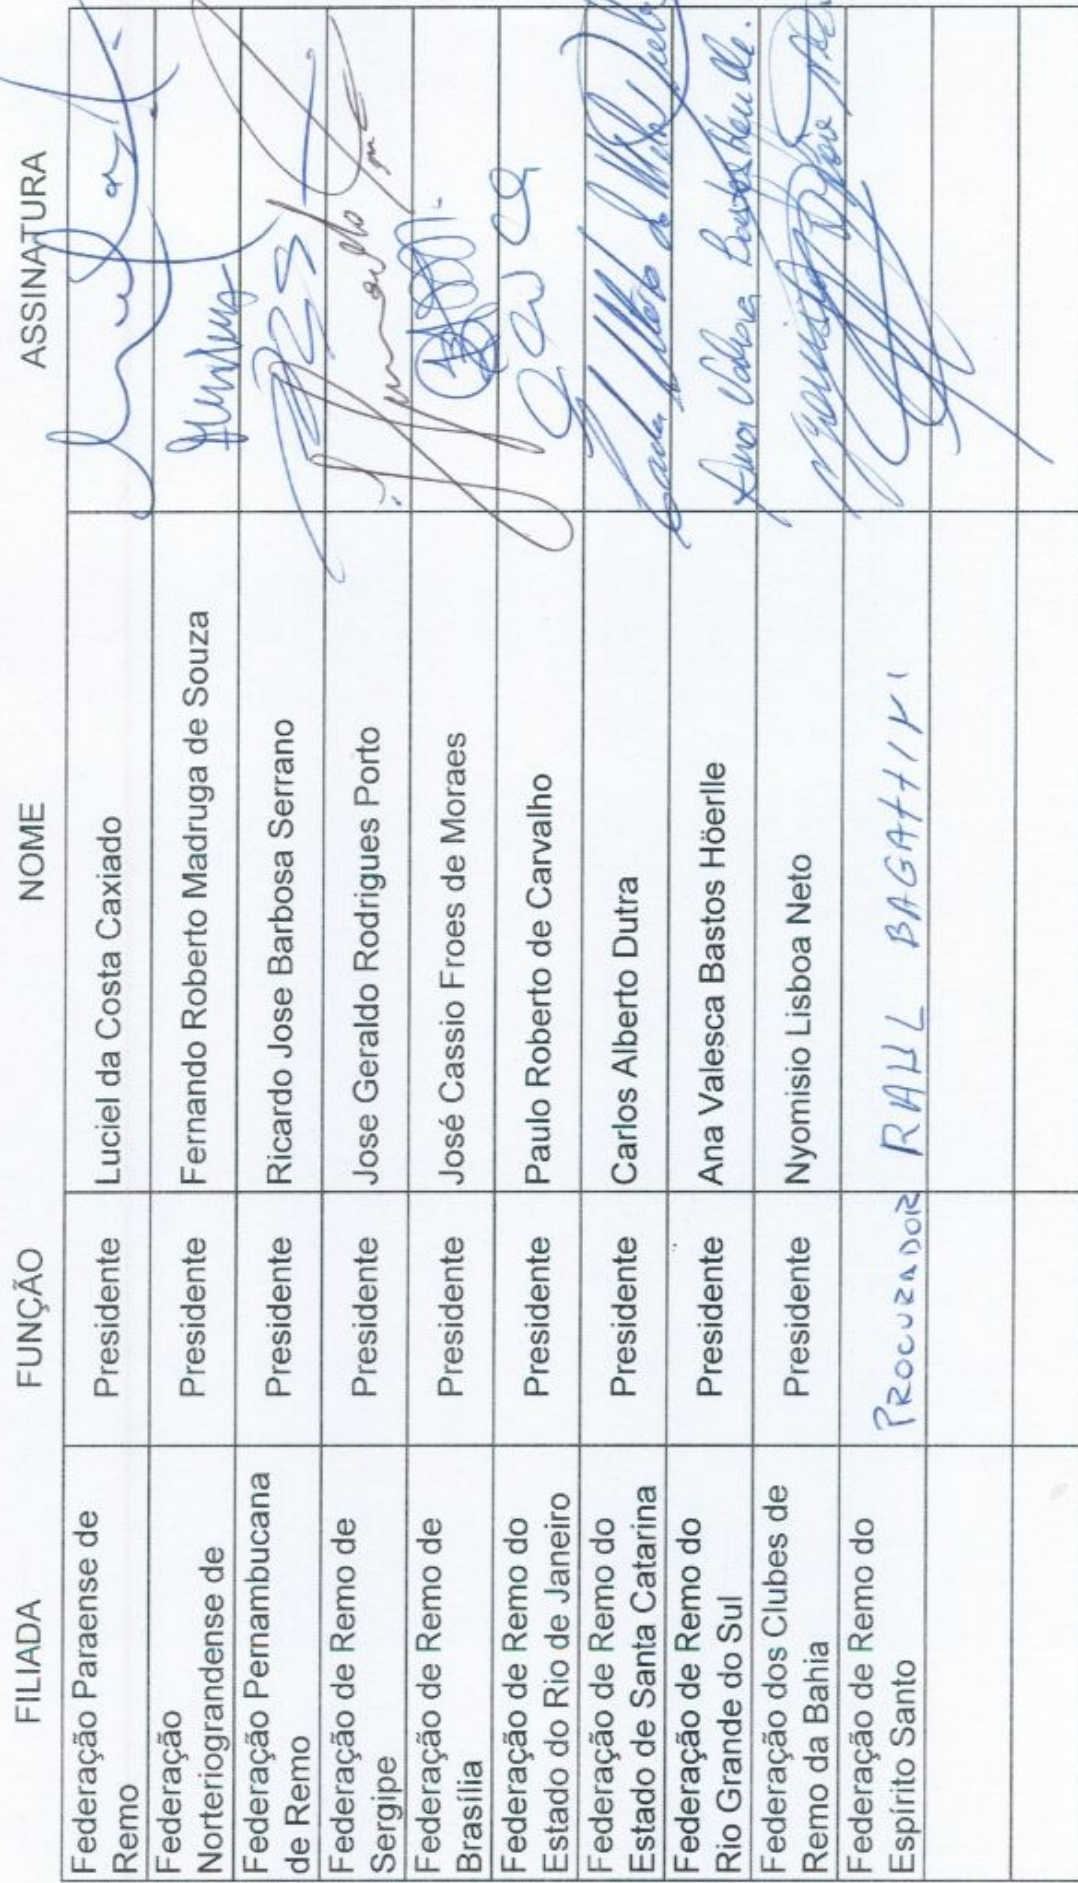 FILIADA FUNÇÃO NOME ASSINATURA
Federação Paraense de
Remo
Presidente
Luciel da Costa Caxiado
Federação
Norteriograndense de
Presidente
Fernando Roberto Madruga de Souza
Federação Pernambucana
de Remo
Presidente
Ricardo Jose Barbosa Serrano
Federação de Remo de
Sergipe
Presidente
Jose Geraldo Rodrigues Porto
Federação de Remo de
Brasília
Presidente
José Cassio Froes de Moraes
Federação de Remo do
Estado do Rio de Janeiro
Presidente
Paulo Roberto de Carvalho
Federação de Remo do
Estado de Santa Catarina
Presidente
Carlos Alberto Dutra
Federação de Remo do
Rio Grande do Sul
Presidente
Ana Valesca Bastos Höerlle
Federação dos Clubes de
Remo da Bahia
Presidente
Nyomisio Lisboa Neto
Federação de Remo do
Espírito Santo
PROCURADOR
RAUL BAGATTINI